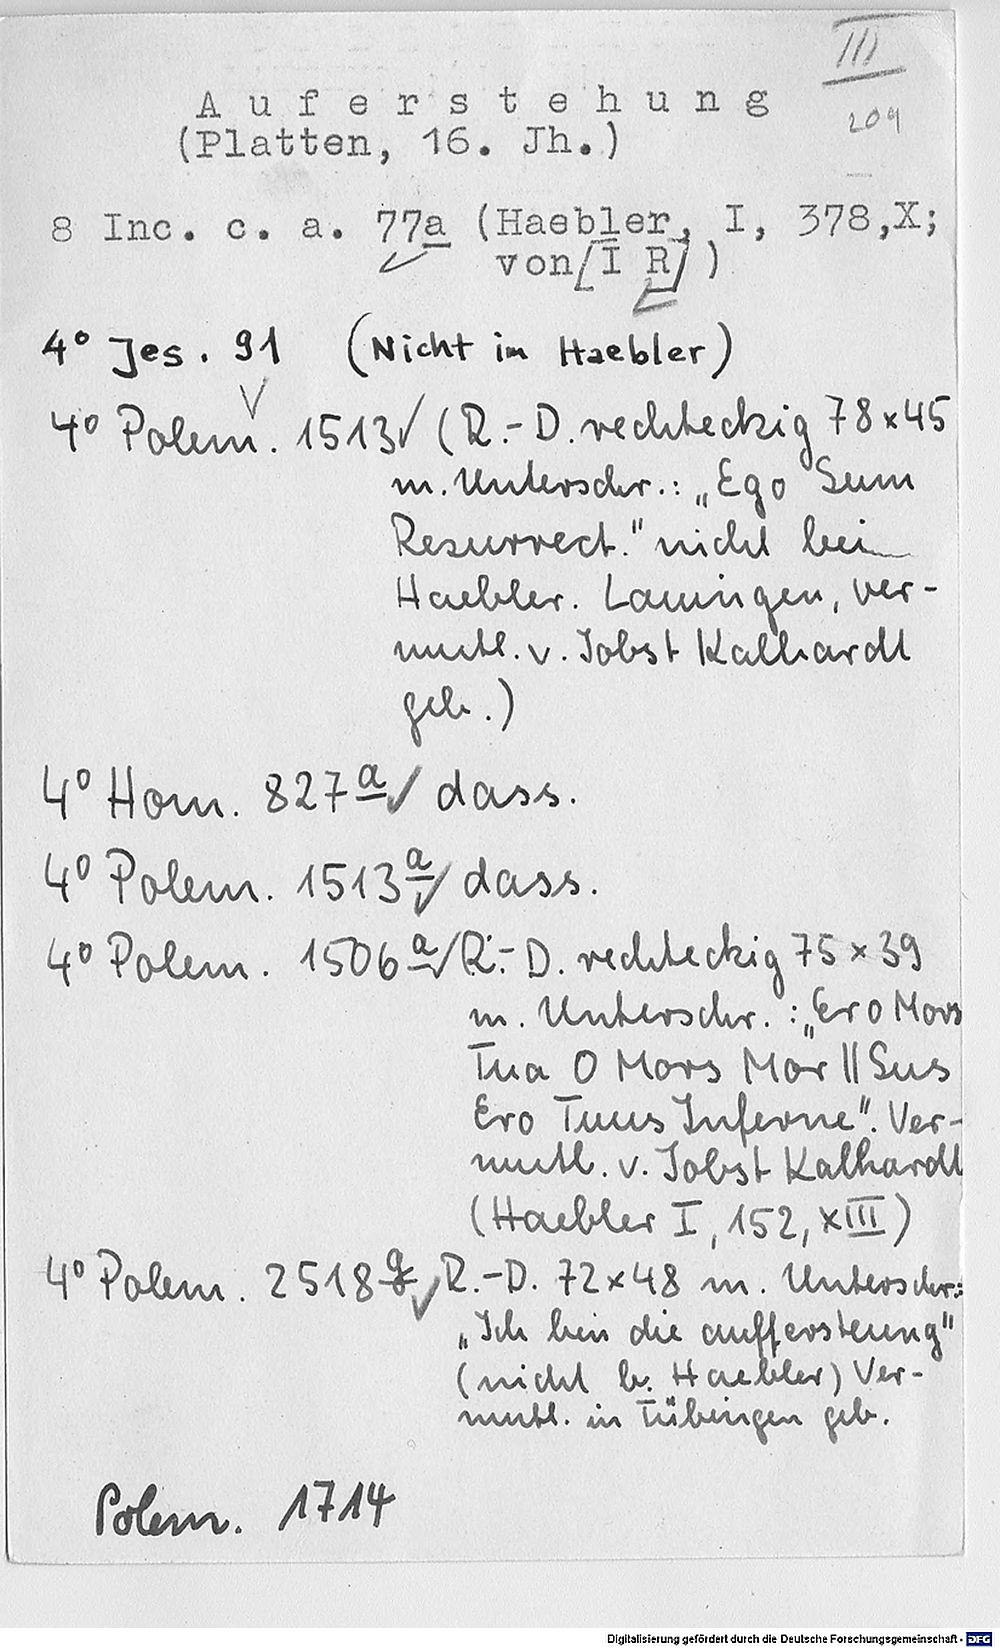 III
209
Auferstehung
(Platten, 16. Jh.)
8 Inc. c. a. 77a (Haebler, I, 378,X;
von [I R] )
4° Jes. 91 (Nicht im Haebler)
4° Polem. 1513 (R.-D. rechteckig 78 x 45
m. Unterschr.: „Ego Sum
Resurrect." nicht bei
Haebler. Lauingen, ver-
mutl. v. Jobst Kalhardt
geb.)
4° Hom. 827a dass.
4° Polem. 1513a dass.
4° Polem. 1506a R.-D. rechteckig 75 x 39
m. Unterschr.: „Ero Mors
Tua O Mors Mor || Sus
Ero Tuus Inferne". Ver-
mutl. v. Jobst Kalhardt
(Haebler I, 152, XIII)
4° Polem. 2518 R.-D. 72 x 48 m. Unterschr.:
„Ich bin die auffersteung"
(nicht b. Haebler) Ver-
mutl. in Tübingen geb.
Polem. 1714
Digitalisierung gefördert durch die Deutsche Forschungsgemeinschaft - DFG